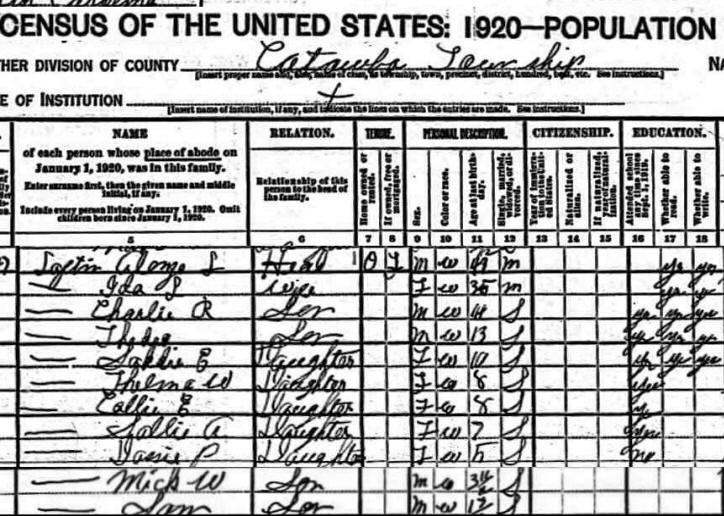 CENSUS OF THE UNITED STATES: 1920—POPULATION
HER DIVISION OF COUNTY Catawba Township NA
[Insert proper name and, also, name of class, as township, town, precinct, district, hundred, beat, etc. See instructions.]
E OF INSTITUTION
[Insert name of institution, if any, and indicate the lines on which the entries are made. See instructions.]
NAME RELATION. TENURE. PERSONAL DESCRIPTION. CITIZENSHIP. EDUCATION.
of each person whose place of abode on January 1, 1920, was in this family.
Enter surname first, then the given name and middle initial, if any.
Include every person living on January 1, 1920. Omit children born since January 1, 1920.
Relationship of this person to the head of the family.
Home owned or rented.
If owned, free or mortgaged.
Sex.
Color or race.
Age at last birthday.
Single, married, widowed, or divorced.
Year of immigration to the United States.
Naturalized or alien.
If naturalized, year of naturalization.
Attended school any time since Sept. 1, 1919.
Whether able to read.
Whether able to write.
5 6 7 8 9 10 11 12 13 14 15 16 17 18
Alonzo L Head O F M W M yes yes
— Ida S wife F W 35 M yes yes
— Charlie R Son M W S yes yes yes
— Son M W 13 S yes yes yes
— E Daughter F W 10 S yes yes yes
— Thelma W Daughter F W 8 S yes
— Callie E Daughter F W 8 S yes
— Sallie A Daughter F W 7 S yes
— P Daughter F W 5 S no
— Mick W Son M W 3 S
— Son M W 1 S